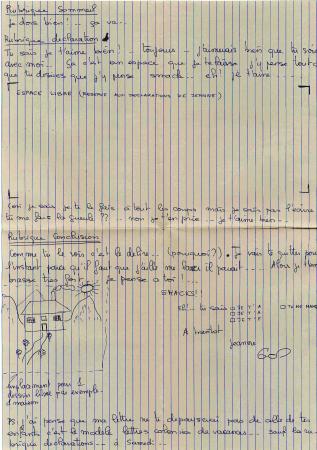 Rubrique Sommeil
Je dors bien ! .. ça va..
Rubrique declaration
Tu sais je t'aime bien ! .. toujours - j'aimerais bien que tu sois
avec moi.. Ça c'est un espace que je te laisse j'y pense tout
que tu desires que j'y pense smack.. eh! je t'aime ......
ESPACE LIBRE (RESERVE AUX DECLARATIONS DE JEANINE)
je sais je te le fais à tout les coups mais je sais pas l'écrire
tu me fais la gueule ?? .. non je t'en prie .. je t'aime bien..
Rubrique Conclusion
Comme tu le vois c'est le delire.. (pourquoi?). Je vais te quitter pour
l'instant parce qu'il faut que j'aille me il parait.. Alors je t'em
brasse très fort .. je pense à toi !..
SMACKS!!
Eh!.. tu sais JE T'A
JE T'A
JE T'A
TU ME MANQ
A bientôt
Jeanine
emplacement pour 1
dessin libre par exemple
d'maison
PS j'ai pensé que ma lettre ne te depayserai pas de celle de tes
enfants c'est le modèle lettres colonies de vacances... sauf la ru
brique declarations .. à Samedi..